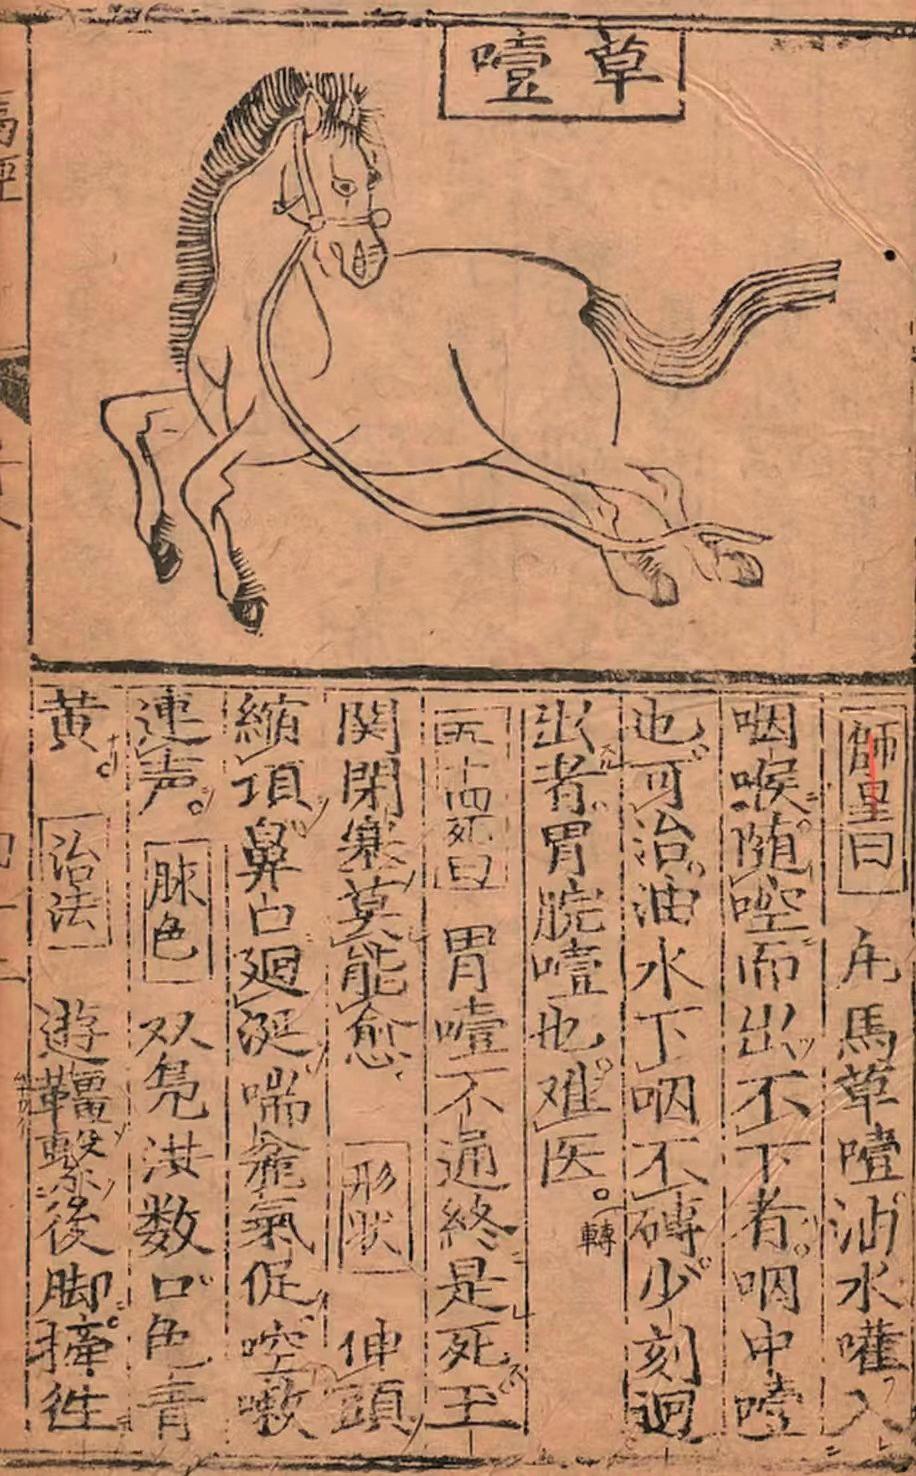 草噎
師皇曰 凢馬草噎油水嚾入
咽喉随啌而出不下者咽中噎
也可治油水下咽不磚少刻迴
出者胃脘噎也难医。轉
五十四死曰 胃噎不通終是死王
関閉塞莫能愈 形状 伸頭
縮項鼻口廻涎喘麄氣促啌嗽
連声。脉色 双凫洪数口色青
黄 治法 遊韁繫後脚撞徃